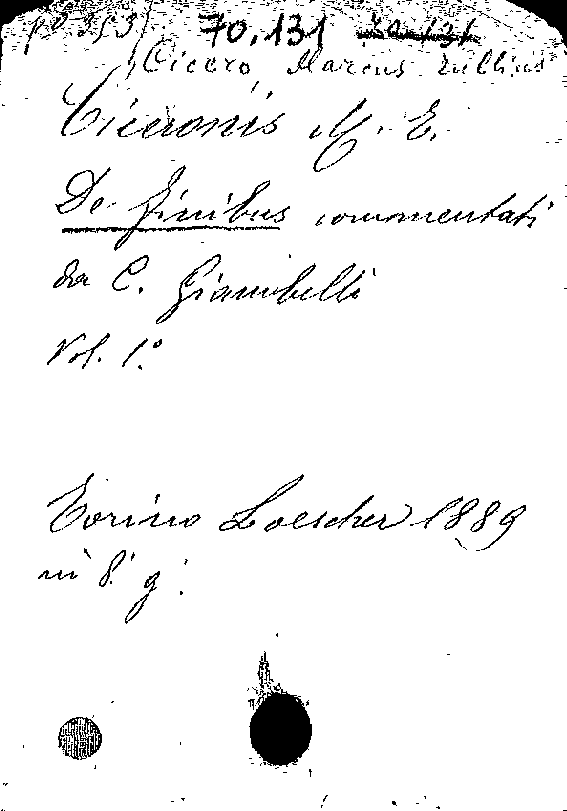 70.131
Cicero, Marcus Tullius
Ciceronis M. T.
De finibus commentati
da C. Giambelli
Vol. 1.º
Torino Loescher 1889
in 8.º g.